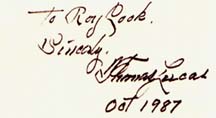 To Roy Cook.
Sincerely.
Thomas Lucas
Oct 1987